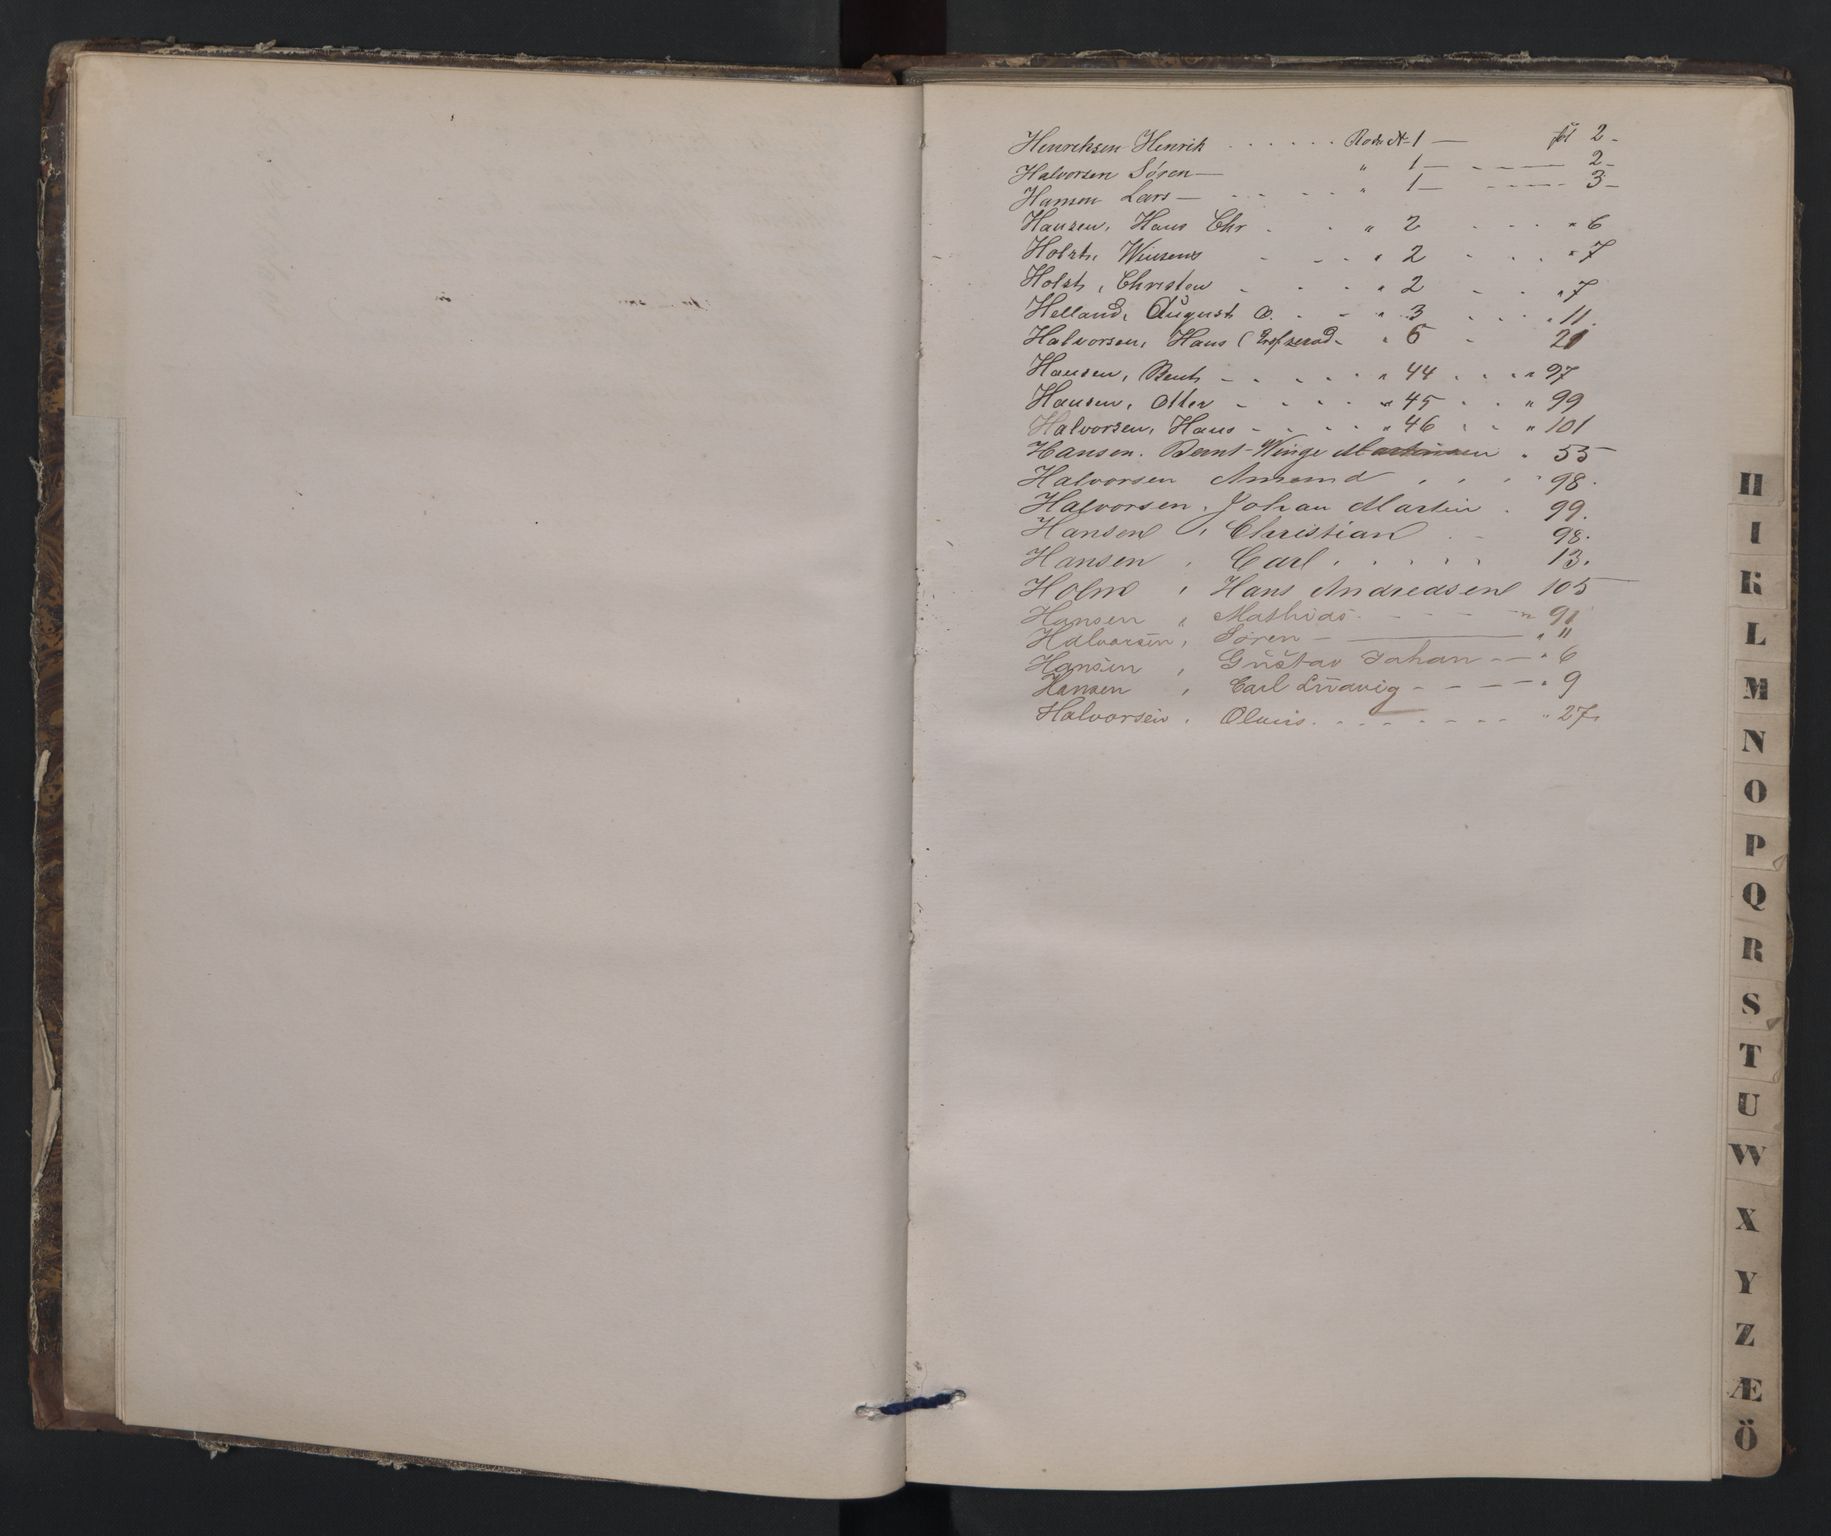 Henriksen Henrik . . . . . . Rode № 1 — fol 2 -
Halvorsen Søren — " 1 — - — — 2 -
Hansen Lars — - - - " 1 — - — - 3 -
Hansen, Hans Chr . . " 2 - - - " 6
Holst, - - - " 2 - - . " 7
Holst, Christen - - - " 2 - - " 7
Helland, August O. - - " 3 - - - " 11.
Halvorsen, Hans ( " 6 - 21
Hansen, Bent - - - - - " 44 . . " " 97
Hansen, Otter - - - - " 45 . . " 99
Halvorsen, Hans - - - - " 46 . . " 101
Hansen. Bernt-Winge Martinsen " 55
Halvorsen Amund , , , " 98.
Halvorsen, Johan Martin . 99.
Hansen , Christian . - 98.
Hansen , Carl , . . . . 13.
Holm , Hans Andreasen 105
Hansen , Mathias. - - - - " 91
Halvorsen, Søren - ——— " "
Hansen , Gustav Johan - — " 6
Hansen , Carl Ludvig - - - — - " 9
Halvorsen , Olaus. - - - - - - - " 27.
H
I
K
L
M
N
O
P
Q
R
S
T
U
W
X
Y
Z
Æ
Ö